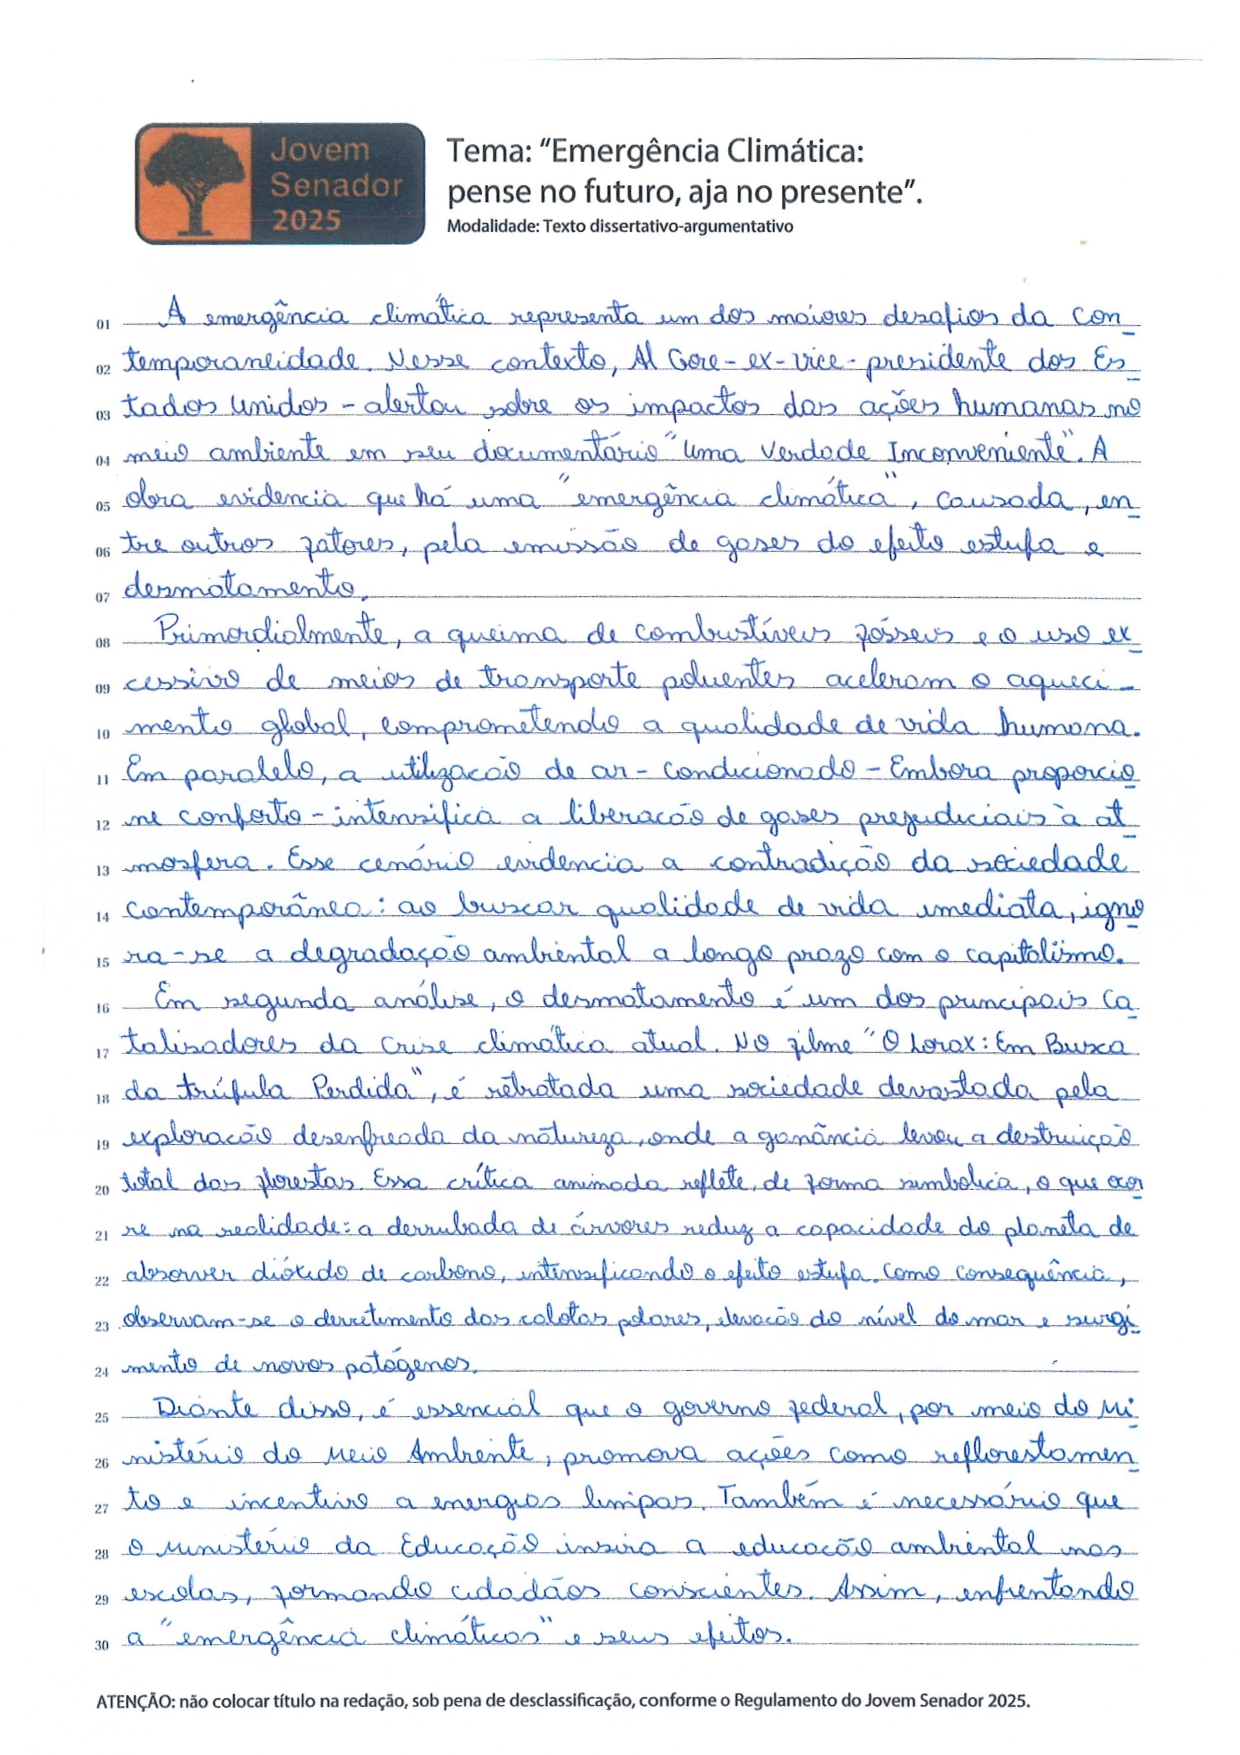 Jovem
Senador
2025
Tema: "Emergência Climática:
pense no futuro, aja no presente".
Modalidade: Texto dissertativo-argumentativo
01 A emergência climática representa um dos maiores desafios da con
02 temporaneidade. Nesse contexto, Al Gore - ex-vice-presidente dos Es
03 tados Unidos - alertou sobre os impactos das ações humanas no
04 meio ambiente em seu documentário "Uma Verdade Inconveniente". A
05 obra evidencia que há uma "emergência climática", causada, en
06 tre outros fatores, pela emissão de gases do efeito estufa e
07 desmatamento.
08 Primordialmente, a queima de combustíveis fósseis e o uso ex
09 cessivo de meios de transporte poluentes aceleram o aqueci-
10 mento global, comprometendo a qualidade de vida humana.
11 Em paralelo, a utilização de ar-condicionado - Embora proporcio
12 ne conforto - intensifica a liberação de gases prejudiciais à at
13 mosfera. Esse cenário evidencia a contradição da sociedade
14 contemporânea: ao buscar qualidade de vida imediata, igno
15 ra-se a degradação ambiental a longo prazo com o capitalismo.
16 Em segunda análise, o desmatamento é um dos principais ca
17 talisadores da crise climática atual. No filme "O Lorax: Em Busca
18 da trúfula Perdida", é retratada uma sociedade devastada pela
19 exploração desenfreada da natureza, onde a ganância levou a destruição
20 total das florestas. Essa crítica animada reflete, de forma simbolica, o que ocor
21 re na realidade: a derrubada de árvores reduz a capacidade do planeta de
22 absorver dióxido de carbono, intensificando o efeito estufa. Como consequência,
23 observam-se o derretimento das calotas polares, elevação do nível do mar e surgi
24 mento de novos patógenos.
25 Diante disso, é essencial que o governo federal, por meio do Mi
26 nistério do Meio Ambiente, promova ações como reflorestamen
27 to e incentivo a energias limpas. Também é necessário que
28 o ministério da Educação insira a educação ambiental nas
29 escolas, formando cidadãos conscientes. Assim, enfrentando
30 a "emergência climáticas" e seus efeitos.
ATENÇÃO: não colocar título na redação, sob pena de desclassificação, conforme o Regulamento do Jovem Senador 2025.